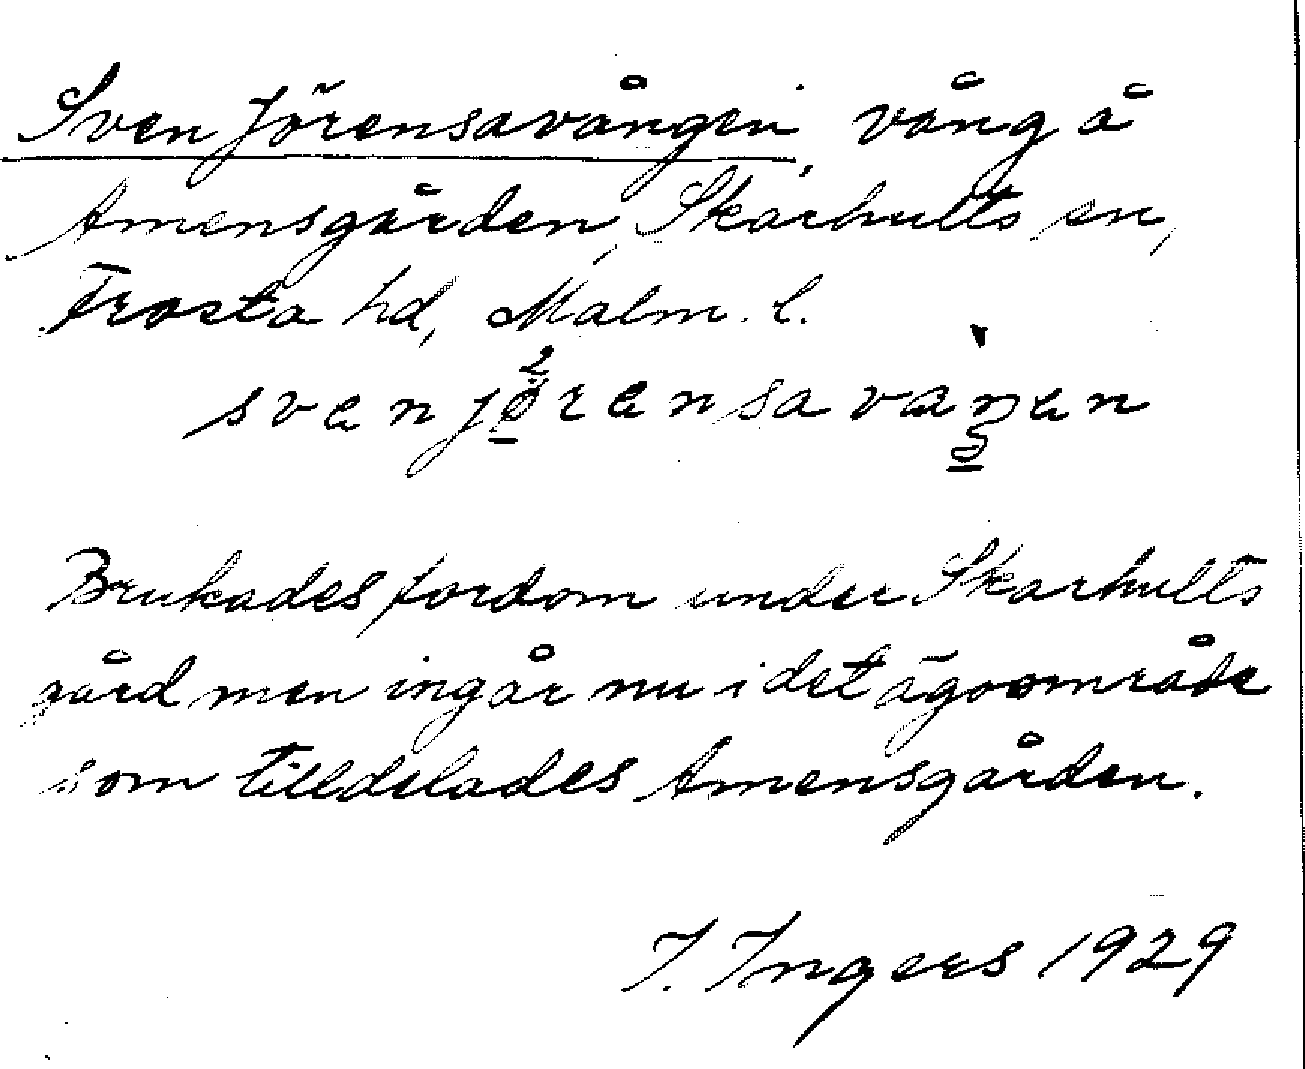 Sven Jörensavången, vång å
Amensgården, Skarhults sn,
Frosta hd, Malm. l.
svenjörensavaŋen
Brukades fordom under Skarhults
gård men ingår nu i det ägoområde
som tilldelades Amensgården.
I. Ingers 1929